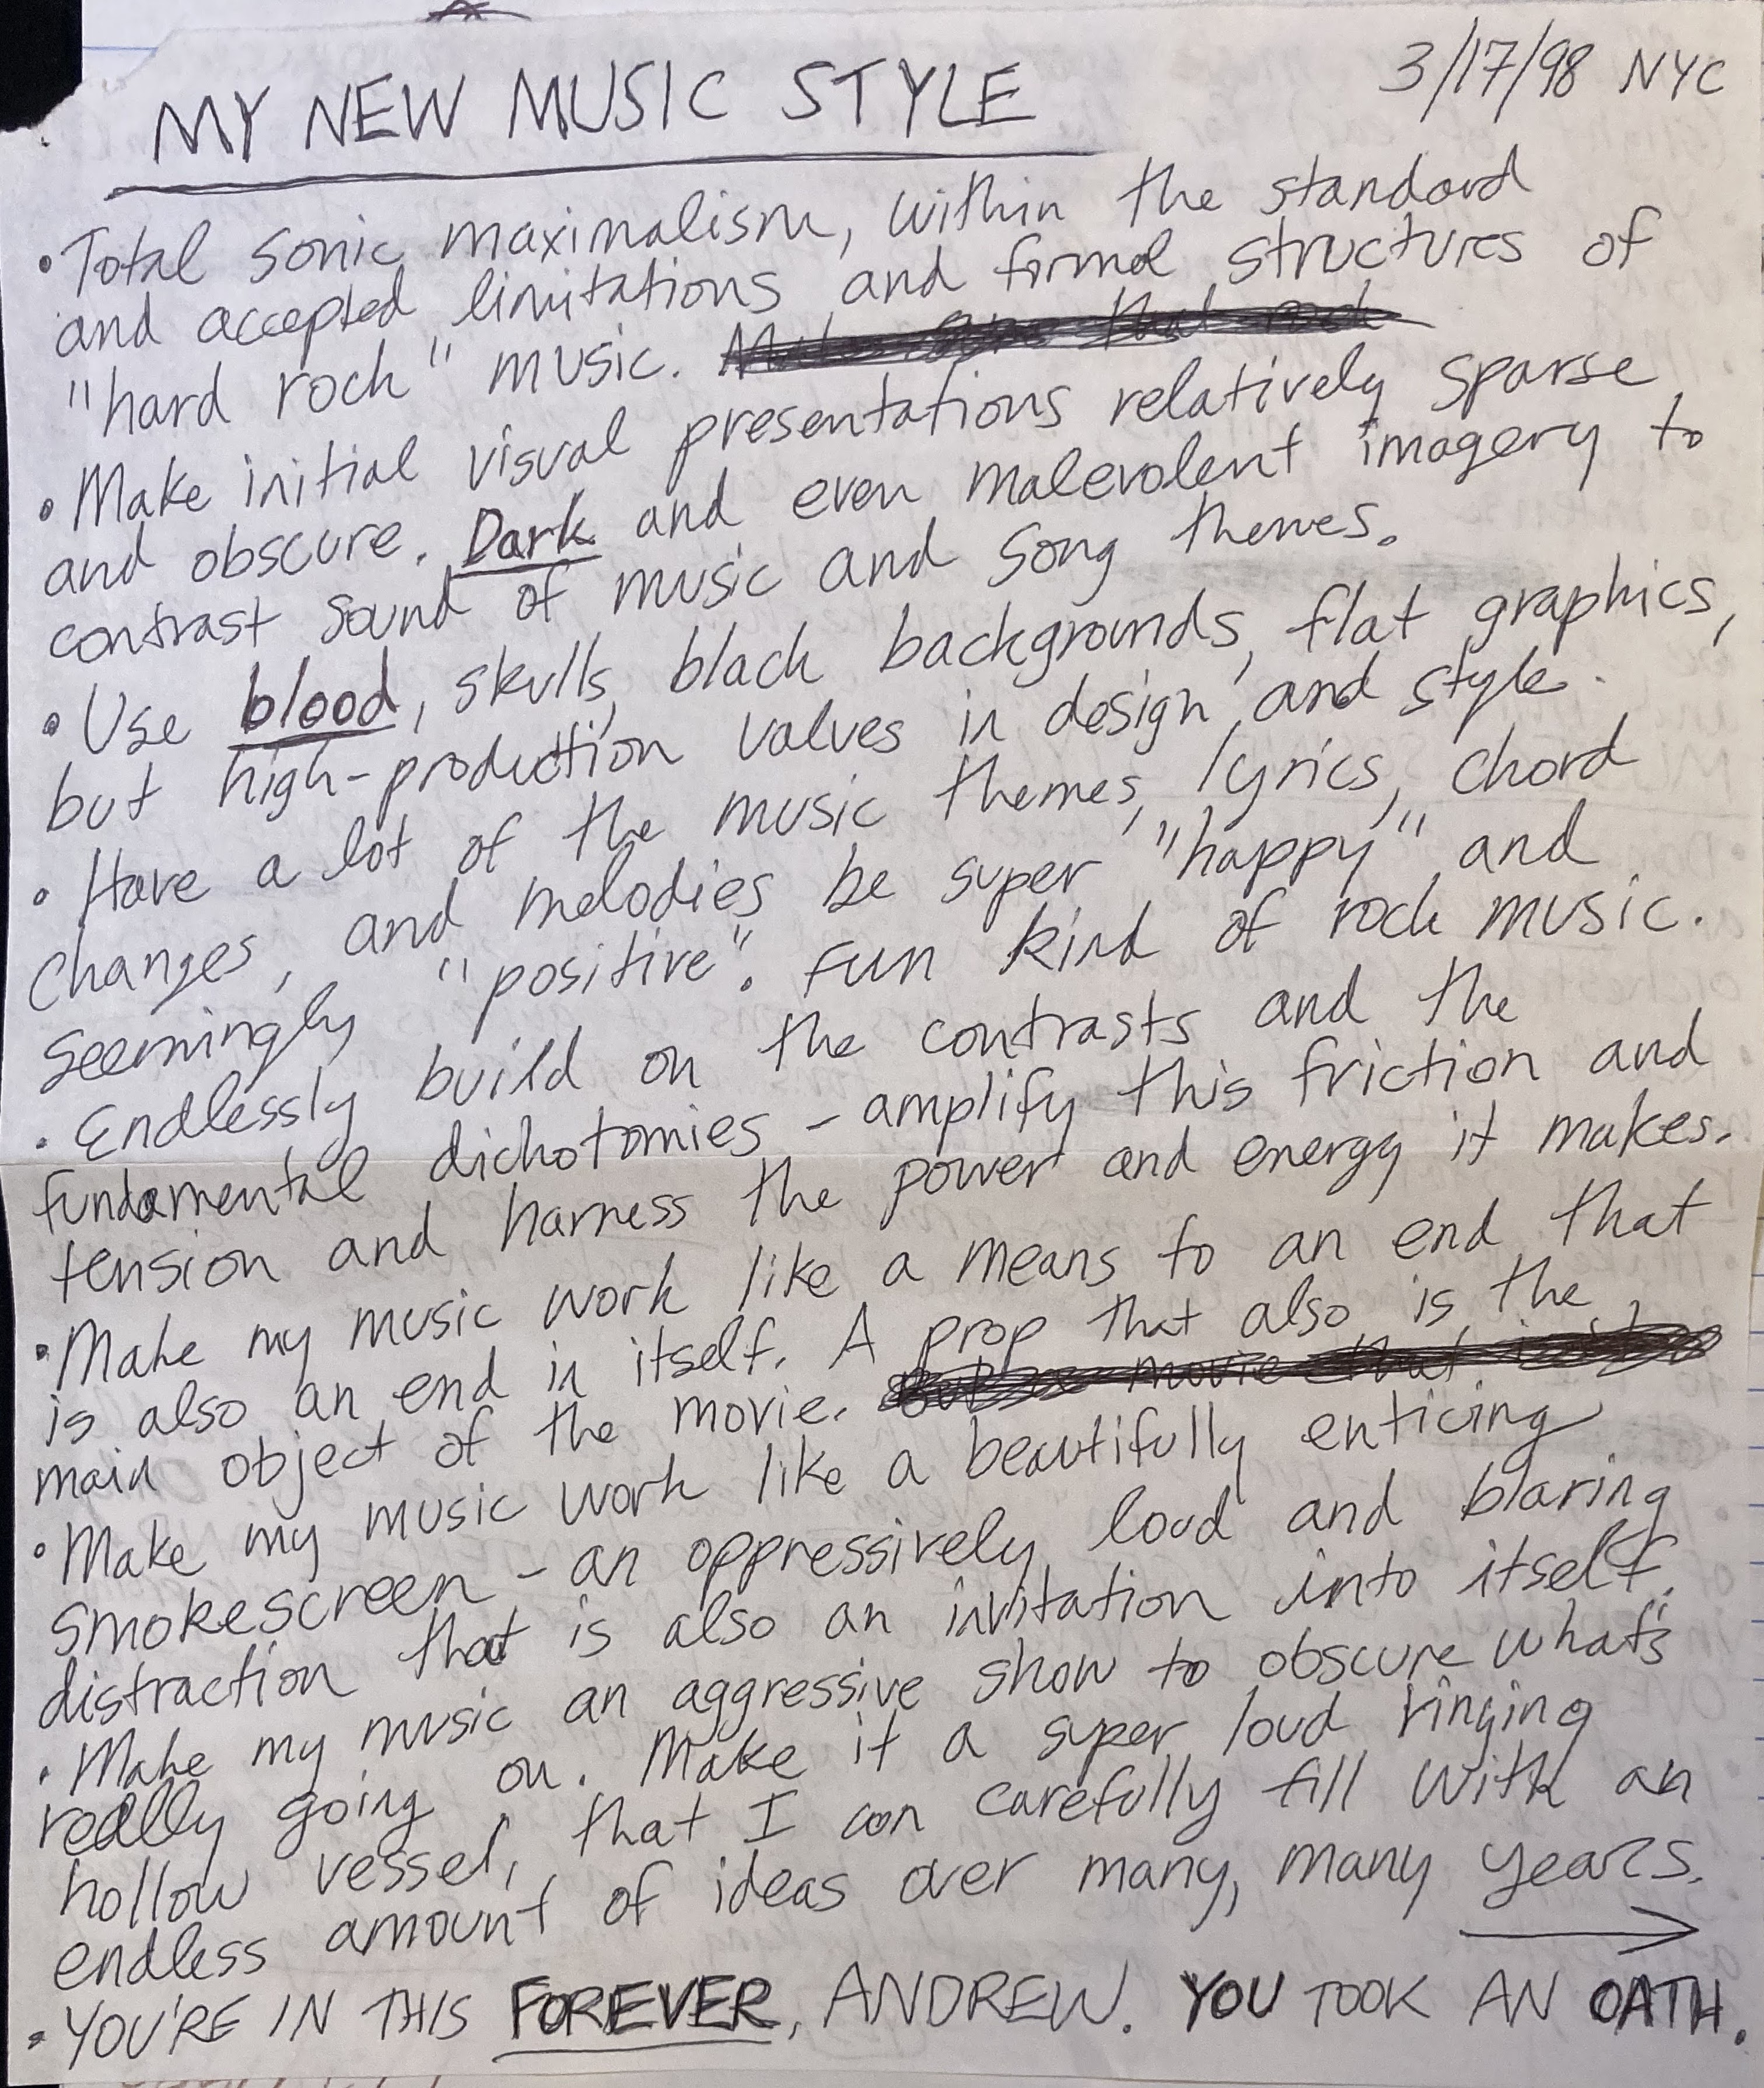 MY NEW MUSIC STYLE
3/17/98 NYC
• Total sonic maximalism, within the standard
and accepted limitations and formal structures of
"hard rock" music.
• Make initial visual presentations relatively sparse
and obscure. Dark and even malevolent imagery to
contrast sound of music and song themes.
• Use blood, skulls, black backgrounds, flat graphics,
but high-production values in design and style.
• Have a lot of the music themes, lyrics, chord
changes, and melodies be super "happy" and
seemingly "positive". Fun kind of rock music.
• Endlessly build on the contrasts and the
fundamental dichotomies - amplify this friction and
tension and harness the power and energy it makes.
• Make my music work like a means to an end that
is also an end in itself. A prop that also is the
main object of the movie.
• Make my music work like a beautifully enticing
smokescreen - an oppressively loud and blaring
distraction that is also an invitation into itself.
• Make my music an aggressive show to obscure what's
really going on. Make it a super loud ringing
hollow vessel, that I can carefully fill with an
endless amount of ideas over many, many years.
• YOU'RE IN THIS FOREVER, ANDREW. YOU TOOK AN OATH.